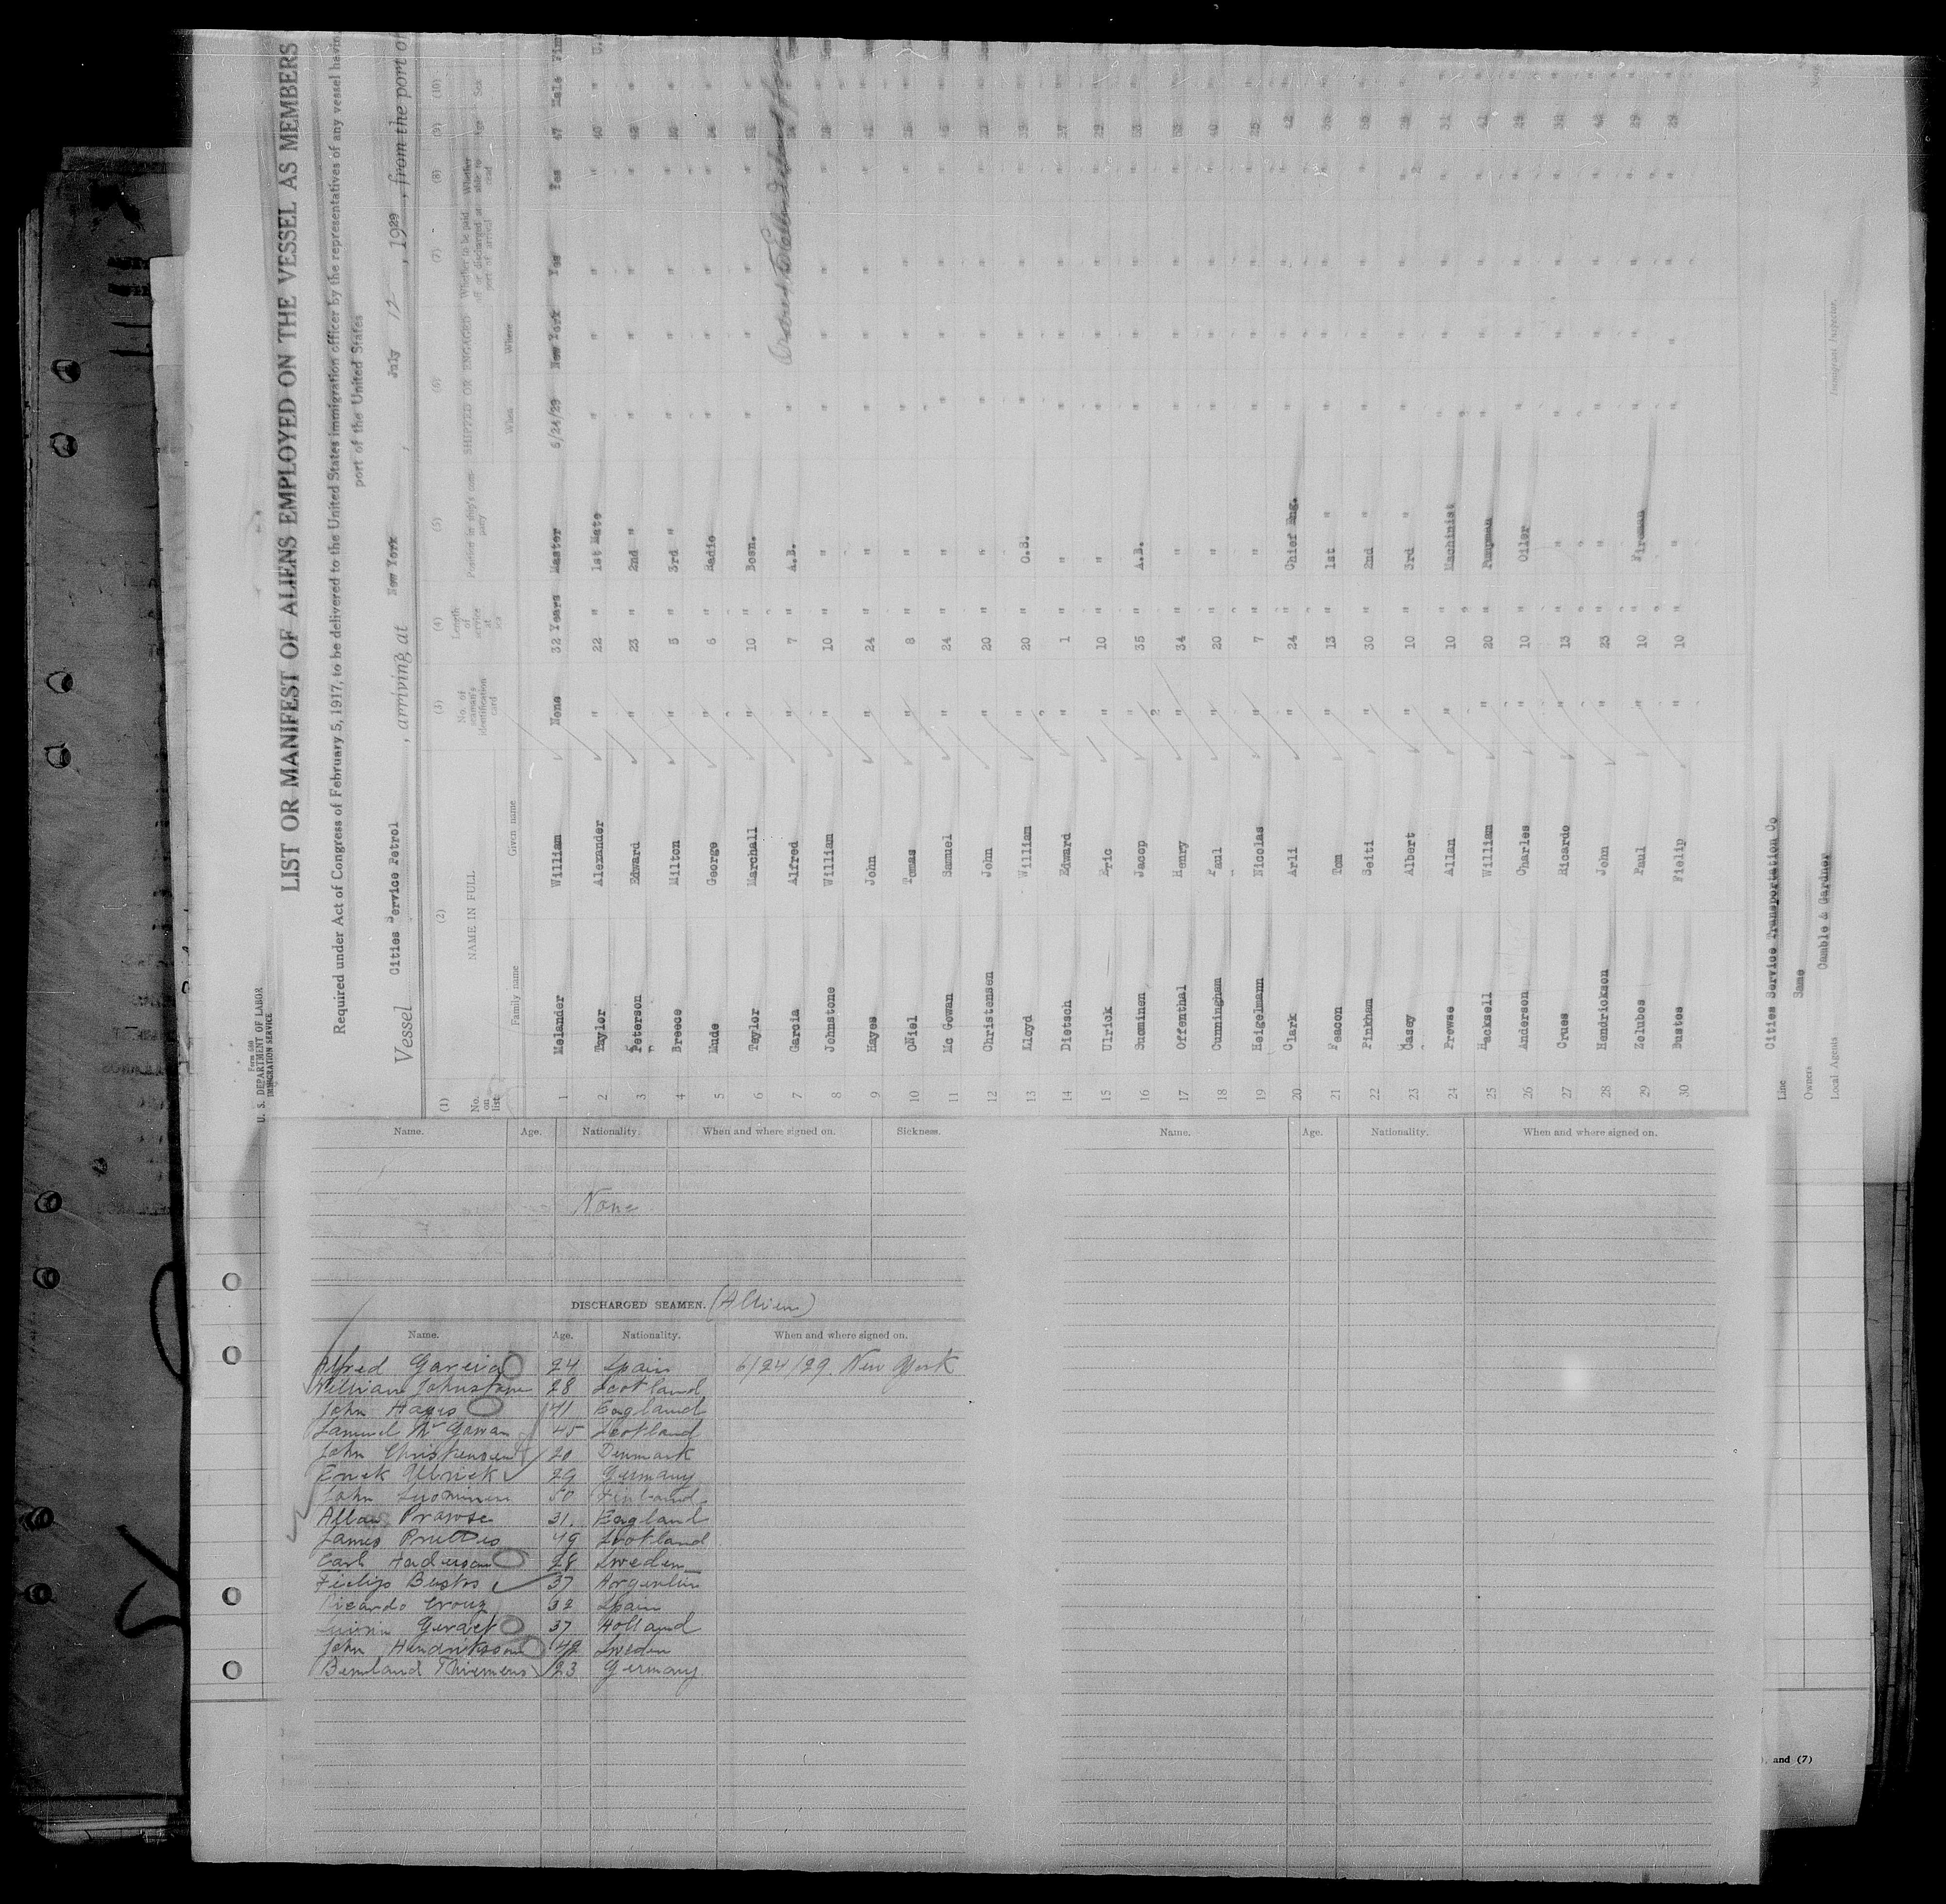 Form 689
U. S. DEPARTMENT OF LABOR
IMMIGRATION SERVICE
LIST OR MANIFEST OF ALIENS EMPLOYED ON THE VESSEL AS MEMBERS
Required under Act of Congress of February 5, 1917, to be delivered to the United States immigration officer by the representatives of any vessel havin
port of the United States
Vessel Cities Service Petrol, arriving at New York, July 12, 1929, from the port of
(1) (2) (3) (4) (5) (6) (7) (8) (9) (10)
No. on list NAME IN FULL No. of seaman's identification card Length of service at sea Position in ship's company SHIPPED OR ENGAGED Whether to be paid off or discharged at port of arrival Whether able to read Age Sex
Family name Given name When Where
1 Melander William None 32 Years Master 6/24/29 New York Yes Yes 47 Male
2 Taylor Alexander " 22 " 1st Mate " " " " 40 "
3 Peterson Edward " 23 " 2nd " " " " "
4 Breece Milton " 5 " 3rd " " " " "
5 Mude George " 6 " Radio " " " "
6 Taylor Marchall " 10 " Bosn. " " " "
7 Garcia Alfred " 7 " A.B. "
8 Johnstone William " 10 " " " " " " 28 "
9 Hayes John " 24 " " " " " " 41 "
10 ONiel Tomas " 8 " " " " " "
11 Mc Gowan Samuel " 24 " " " " " " 45 "
12 Christensen John " 20 " " " " " " 20 "
13 Lloyd William " 20 " O.S. " " " "
14 Dietsch Edward " 1 " " " " " "
15 Ulrick Eric " 10 " " " " " " 29 "
16 Suominen Jacop " 35 " A.B. " " " "
17 Offenthal Henry " 34 " " " " " "
18 Cunningham Paul " 20 " " " " " " 40 "
19 Heigelmann Nicolas " 7 " " " " " " 25 "
20 Clark Arli " 24 " Chief Eng. " " " " 42 "
21 Peacon Tom " 13 " 1st " " " " "
22 Pinkham Seiti " 30 " 2nd " " " " "
23 Casey Albert " 10 " 3rd " " " " "
24 Prowse Allan " 10 " Machinist " " " " 31 "
25 Hacksell William " 20 " Pumpman " " " " 41 "
26 Anderson Charles " 10 " Oiler " " " "
27 Crues Ricardo " 13 " " " " " " 32 "
28 Hendrickson John " 23 " " " " " " 42 "
29 Zelubes Paul " 10 " Fireman " " " " 29 "
30 Bustes Fielip " 10 " " " " " "
Line Cities Service Transportation Co
Owners Same
Local Agents Gamble & Gardner
Immigrant Inspector.
Name. Age. Nationality. When and where signed on. Sickness.
None
DISCHARGED SEAMEN. (Alien)
Name. Age. Nationality. When and where signed on.
Alfred Garcia 24 Spain 6/24/29. New York
William Johnstone 28 Scotland
John Hayes 41 England
Samuel McGowan 45 Scotland
John Christensen 20 Denmark
Erick Ulrick 29 Germany
John Suominen 50 Finland
Allan Prowse 31. England
James 49 Scotland
Carl Anderson 28 Sweden
Fielip Bustos 37 Argentin
Ricardo Crouz 32 Spain
37 Holland
John Hendriksson 42 Sweden
23 Germany
Name. Age. Nationality. When and where signed on.
, and (7)